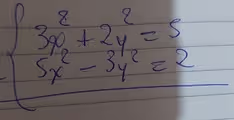 3x² + 2y² = 5
5x² - 3y² = 2